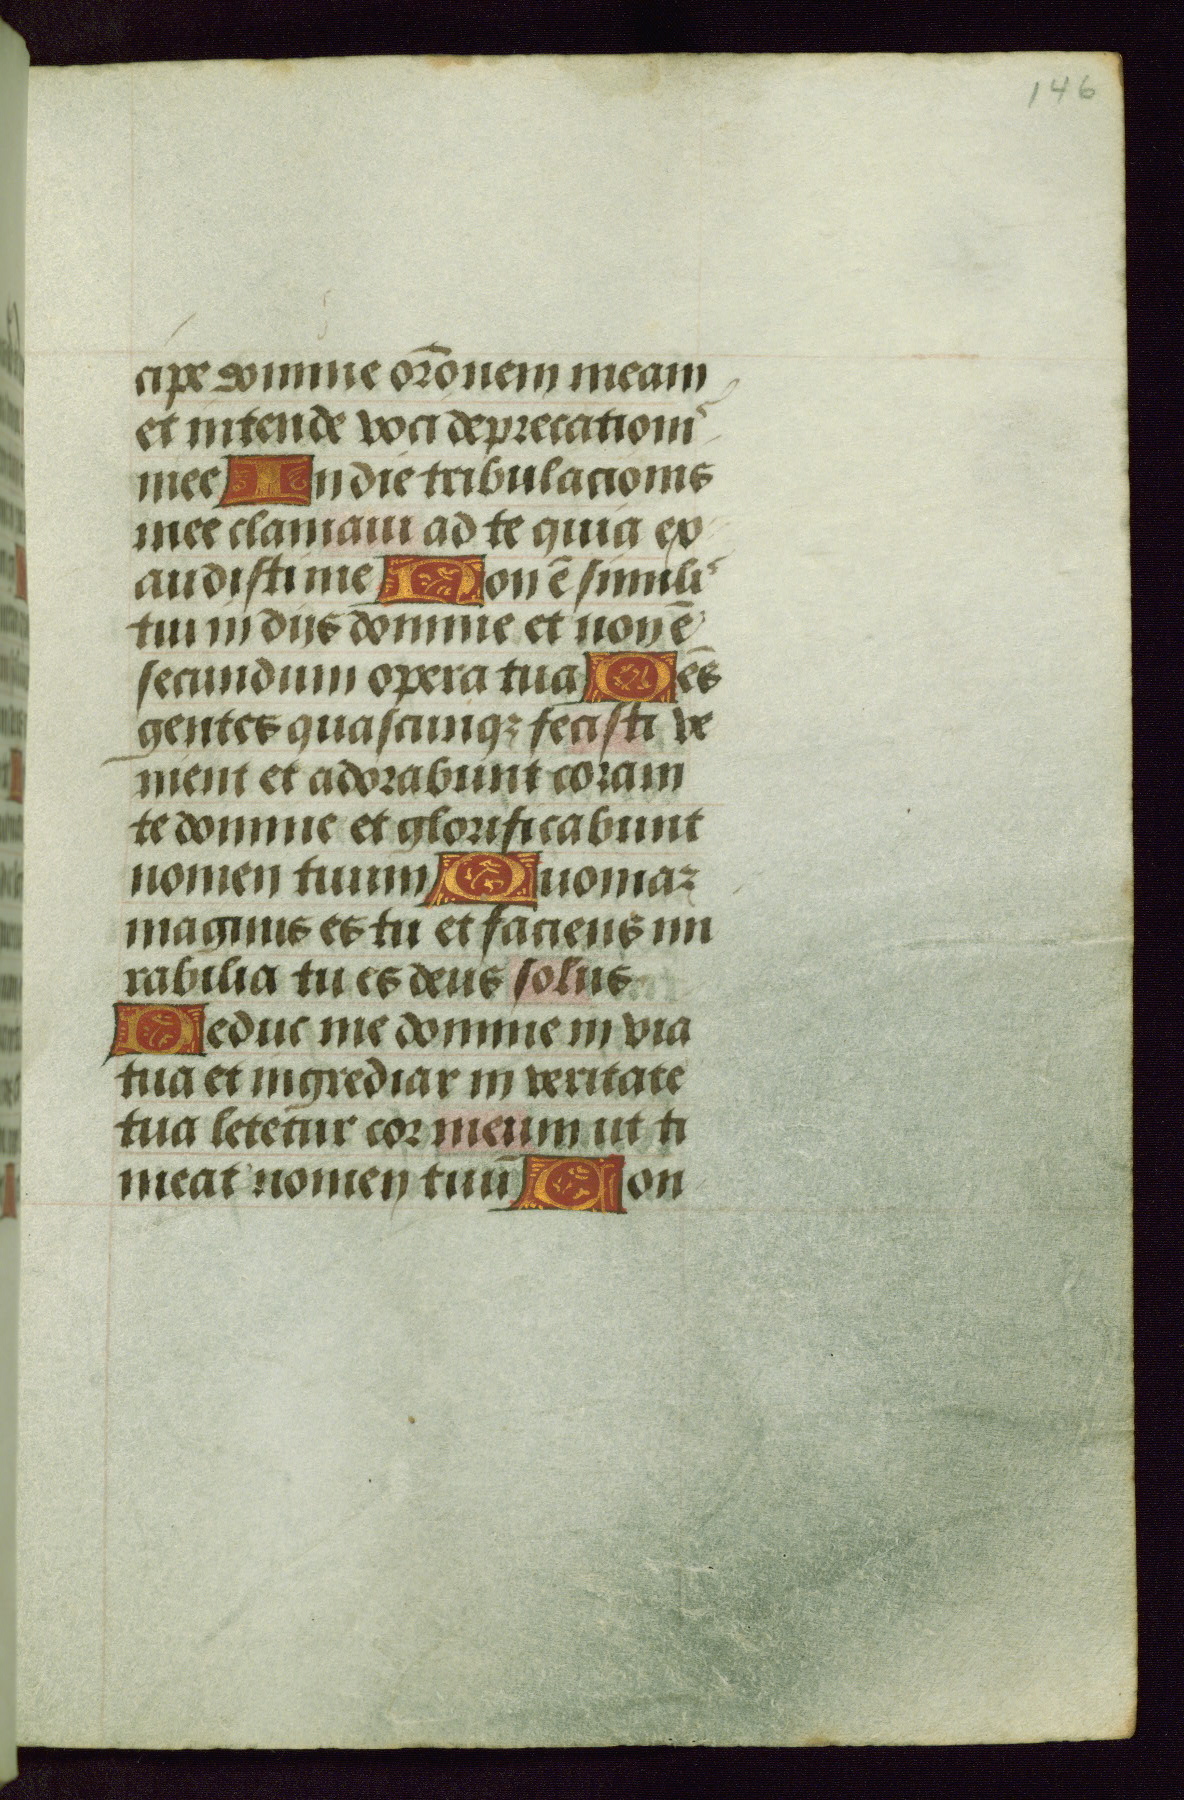 146
cipe domine or̄onem meam
et intende voci deprecationi᷒
mee In die tribulacionis
mee clamaui ad te quia ex
audisti me Non ē simili᷒
tui in dijs domine et non ē
secundum opera tua Om̄es
gentes quascunqꝫ fecisti ve
nient et adorabunt coram
te domine et glorificabunt
nomen tuum Quoniaꝫ
magnus es tu et faciens mi
rabilia tu es deus solus
Deduc me domine in via
tua et ingrediar in veritate
tua letetur cor meum ut ti
meat nomen tuū Con